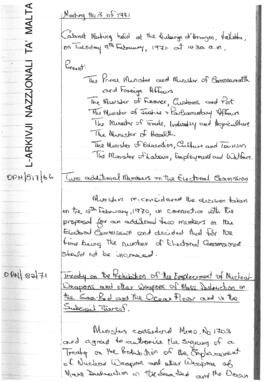 Meeting No. 3 of 1971
Cabinet Meeting held at the Auberge d'Aragon, Valletta,
on Tuesday 9th February, 1971 at 10.30 a.m.
Present:
The Prime Minister and Minister of Commonwealth
and Foreign Affairs
The Minister of Finance, Customs and Port
The Minister of Justice + Parliamentary Affairs
The Minister of Trade, Industry and Agriculture
The Minister of Health
The Minister of Education, Culture and Tourism
The Minister of Labour, Employment and Welfare.
L-ARKIVJI NAZZJONALI TA' MALTA
OPM/517/66
Two additional Members on the Electoral Commission
Ministers reconsidered the decision taken
on the February, 1970, in connection with the
proposal for an additional two members on the
Electoral Commission and decided that for the
time being the number of Electoral Commissioners
should not be increased.
OPM/82/71
Treaty on the Prohibition of the Emplacement of Nuclear
Weapons and other Weapons of Mass Destruction on
the Sea-Bed and the Ocean Floor and in the
Subsoil Thereof.
Ministers considered Memo. No 1703
and agreed to authorise the signing of a
Treaty on the Prohibition of the Emplacement
of Nuclear Weapons and other Weapons of
Mass Destruction on the Sea-Bed and the Ocean